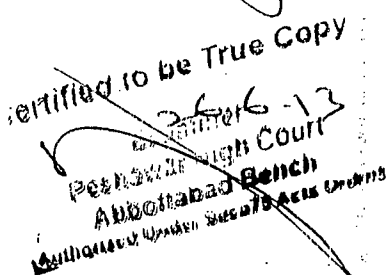 Certified to be True Copy
26-6-13
Examiner
Peshawar High Court
Abbottabad Bench
Authorised Under
Acts Orders